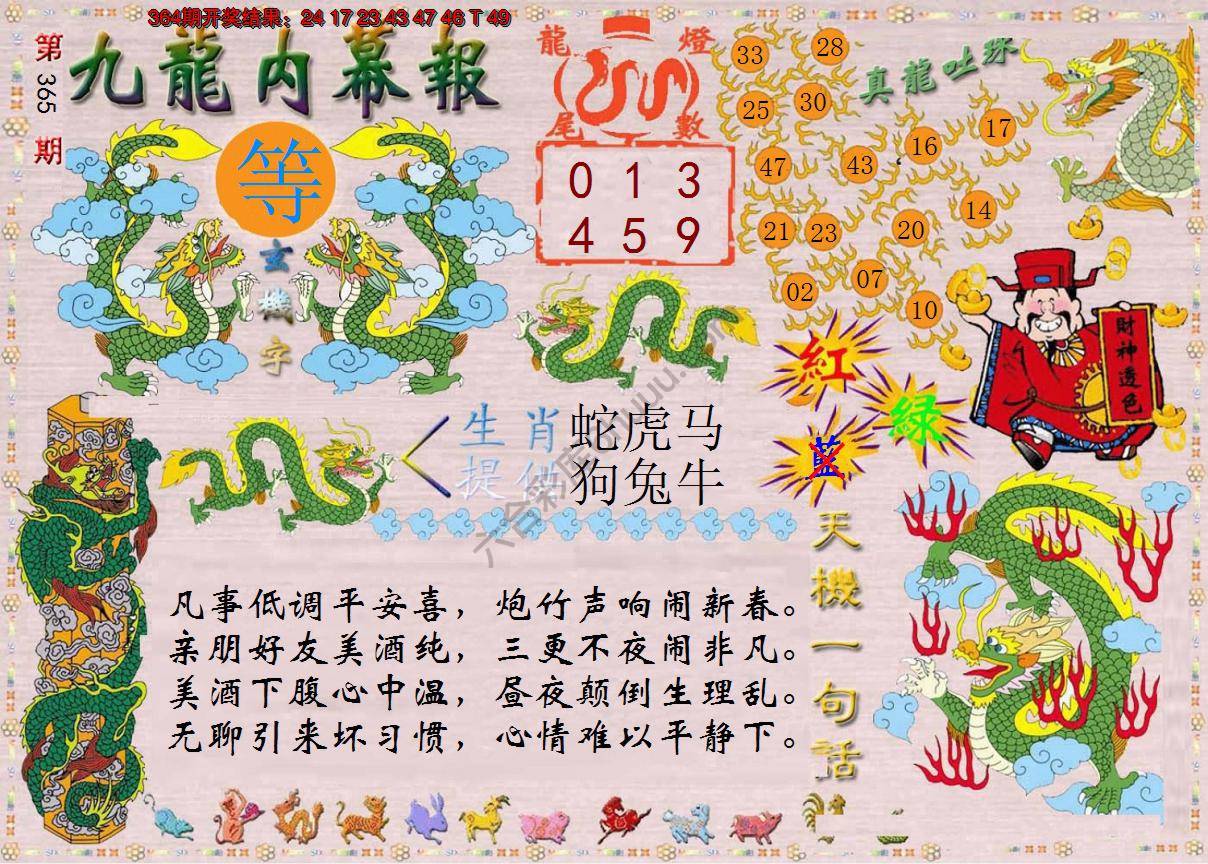 364期开奖结果：24 17 23 43 47 46 T 49
第365期
九龍内幕報
等
玄機字
龍燈
尾數
0 1 3
4 5 9
真龍吐珠
33 28
25 30
47 43 16 17
21 23 20 14
02 07 10
財神透色
紅
綠
藍
生肖 蛇虎马
提供 狗兔牛
天機一句話
凡事低调平安喜，炮竹声响闹新春。
亲朋好友美酒纯，三更不夜闹非凡。
美酒下腹心中温，昼夜颠倒生理乱。
无聊引来坏习惯，心情难以平静下。